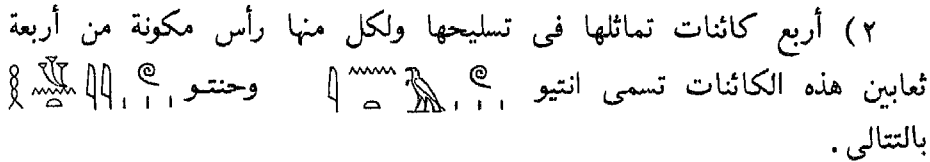 ٢) أربع كائنات تماثلها فى تسليحها ولكل منها رأس مكونة من أربعة
ثعابين هذه الكائنات تسمى انتيو وحنتو
بالتتالى .